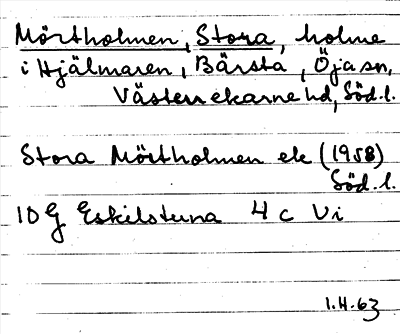 Mörtholmen, Stora, holme
i Hjälmaren, Bärsta, Öja sn,
Västerrekarne hd, Söd.l.
Stora Mörtholmen ek (1958)
Söd.l.
10G Eskilstuna 4 c Vi
1.4.63